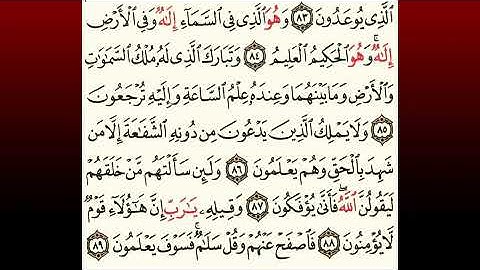 الَّذِي يُوعَدُونَ ٨٣ وَهُوَ الَّذِي فِي السَّمَاءِ إِلَهٌ وَفِي الْأَرْضِ
إِلَهٌ وَهُوَ الْحَكِيمُ الْعَلِيمُ ٨٤ وَتَبَارَكَ الَّذِي لَهُ مُلْكُ السَّمَوَاتِ
وَالْأَرْضِ وَمَا بَيْنَهُمَا وَعِندَهُ عِلْمُ السَّاعَةِ وَإِلَيْهِ تُرْجَعُونَ
٨٥ وَلَا يَمْلِكُ الَّذِينَ يَدْعُونَ مِن دُونِهِ الشَّفَعَةَ إِلَّا مَن
شَهِدَ بِالْحَقِّ وَهُمْ يَعْلَمُونَ ٨٦ وَلَئِن سَأَلْتَهُم مَّنْ خَلَقَهُمْ
لَيَقُولُنَّ اللَّهُ فَأَنَّى يُؤْفَكُونَ ٨٧ وَقِيلِهِ يَرَبِّ إِنَّ هَؤُلَاءِ قَوْمٌ
لَّا يُؤْمِنُونَ ٨٨ فَاصْفَحْ عَنْهُمْ وَقُلْ سَلَمٌ فَسَوْفَ يَعْلَمُونَ ٨٩